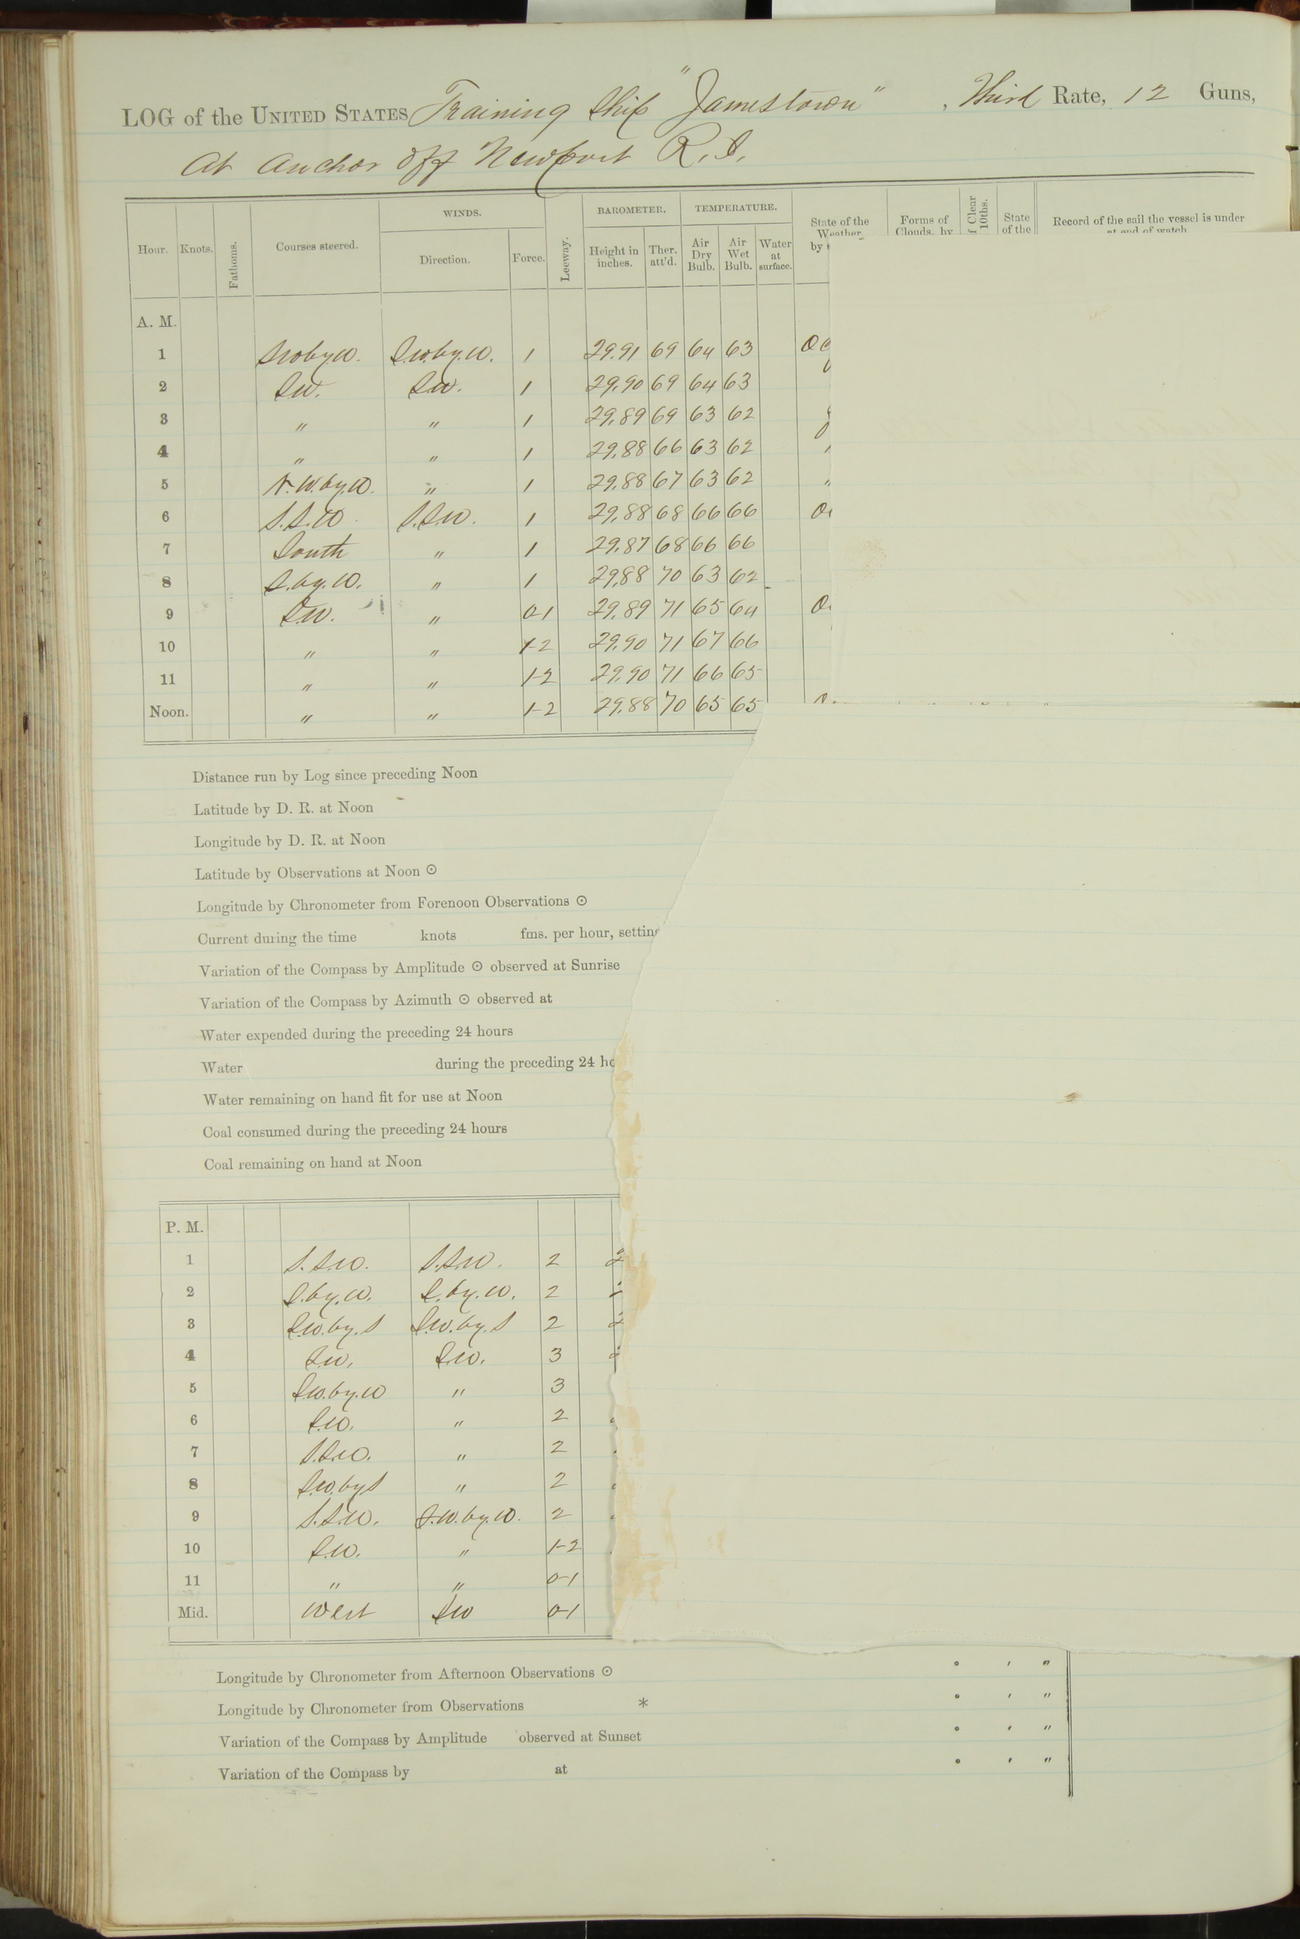 LOG of the UNITED STATES Training Ship "Jamestown", Third Rate, 12 Guns,
At Anchor off Newport R.I.
Hour. Knots. Fathoms. Courses steered. WINDS. Direction. Force. Leeway. BAROMETER. Height in inches. Ther. att'd. TEMPERATURE. Air Dry Bulb. Air Wet Bulb. Water at surface. State of the Weather by Forms of Clouds, by Clear 10ths. State of the Record of the sail the vessel is under at end of watch
A. M.
1 SW by W. SW. by. W. 1 29.91 69 64 63 OC
2 SW. SW. 1 29.90 69 64 63
3 " " 1 29.89 69 63 62
4 " " 1 29.88 66 63 62
5 N. W. by. W. " 1 29.88 67 63 62 "
6 S.S.W. S.S.W. 1 29.88 68 66 66
7 South " 1 29.87 68 66 66
8 S. by. W. " 1 29.88 70 63 62
9 S.W. " 0-1 29.89 71 65 64
10 " " 1-2 29.90 71 67 66
11 " " 1-2 29.90 71 66 65
Noon. " " 1-2 29.88 70 65 65
Distance run by Log since preceding Noon
Latitude by D. R. at Noon
Longitude by D. R. at Noon
Latitude by Observations at Noon ☉
Longitude by Chronometer from Forenoon Observations ☉
Current during the time knots fms. per hour, setting
Variation of the Compass by Amplitude ☉ observed at Sunrise
Variation of the Compass by Azimuth ☉ observed at
Water expended during the preceding 24 hours
Water during the preceding 24 ho
Water remaining on hand fit for use at Noon
Coal consumed during the preceding 24 hours
Coal remaining on hand at Noon
P. M.
1 S.S.W. S.S.W. 2 2
2 S. by. W. S. by. W. 2
3 S.W. by. S S.W. by. S 2
4 S.W. S.W. 3
5 S.W. by. W " 3
6 S.W. " 2
7 S.S.W. " 2
8 S.W. by S " 2
9 S.S.W. S.W. by. W. 2
10 S.W. " 1-2
11 " " 0-1
Mid. West SW 0-1
Longitude by Chronometer from Afternoon Observations ☉ ° ' "
Longitude by Chronometer from Observations * ° ' "
Variation of the Compass by Amplitude observed at Sunset ° ' "
Variation of the Compass by at ° ' "